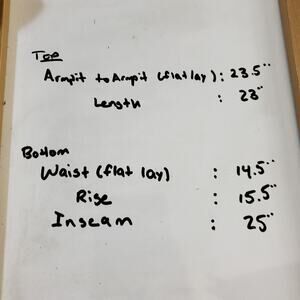 Top
Armpit to Armpit (flat lay) : 23.5"
Length : 23"
Bottom
Waist (flat lay) : 14.5"
Rise : 15.5"
Inseam : 25"